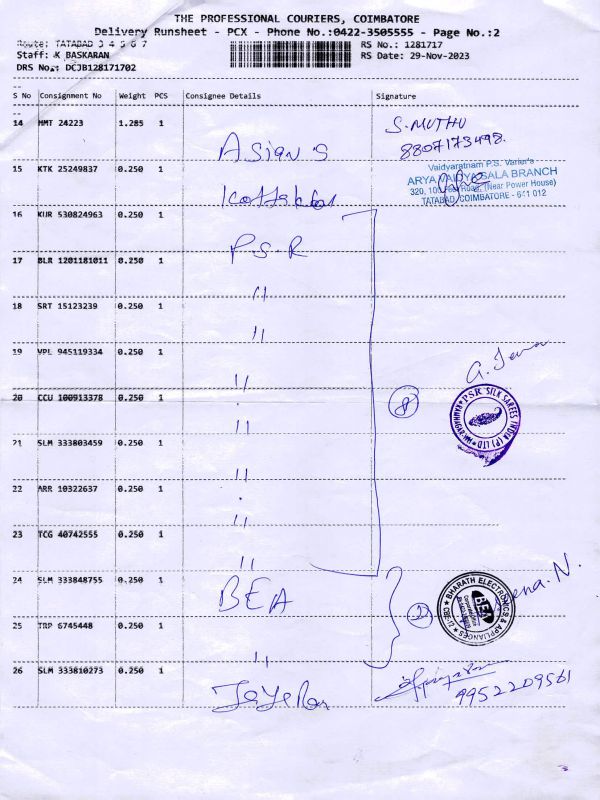 THE PROFESSIONAL COURIERS, COIMBATORE
Delivery Runsheet - PCX - Phone No.:0422-3505555 - Page No.:2
Route: TATABAD 3 4 5 6 7
RS No.: 1281717
Staff: K BASKARAN
RS Date: 29-Nov-2023
DRS No.: DCJB128171702
S No Consignment No Weight PCS Consignee Details Signature
14 MMT 24223 1.285 1 Asian S S. MUTHU
8807173498.
15 KTK 25249837 0.250 1
Vaidyaratnam P.S. Varier's
ARYA VAIDYA SALA BRANCH
320, 100 Feet Road, (Near Power House)
TATABAD, COIMBATORE - 641 012
16 KUR 530824963 0.250 1 P.S.R
17 BLR 1201181011 0.250 1 "
18 SRT 15123239 0.250 1 "
19 VPL 945119334 0.250 1 "
20 CCU 100913378 0.250 1 " 8
PSR SILK SAREES INDIA (P) LTD
21 SLM 333803459 0.250 1 "
22 ARR 10322637 0.250 1 "
23 TCG 40742555 0.250 1 "
24 SLM 333848755 0.250 1 BEA 2
BHARATH ELECTRONICS & APPLIANCES
BEA
25 TRP 6745448 0.250 1 "
26 SLM 333810273 0.250 1
9952209561